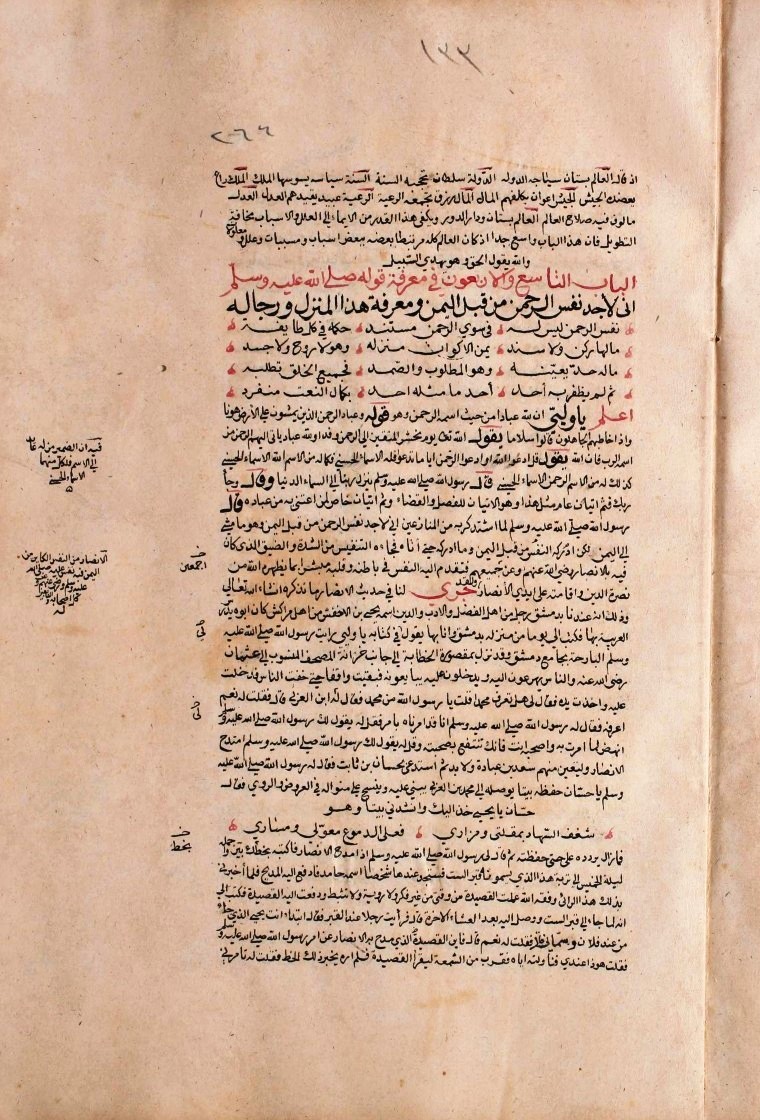 ١٣٣
٢٦٦
اذ قال العالم بستان سياجه الدولة الدولة سلطان تحجبه السنة السنة سياسة يسوسها الملك الملك راع
يعضده الجيش الجيش اعوان يكلفهم المال المال رزق تجمعه الرعية الرعية عبيد يقيدهم العدل العدل
مألوف فيه صلاح العالم العالم بستان ودار الدور ويكفي هذا القدر من الايماء الى العلل والاسباب مخافة
التطويل فان هذا الباب واسع جدا اذ كان العالم كله مرتبطا بعضه ببعض اسباب ومسببات وعلل ومعلولات
والله يقول الحق وهو يهدي السبيل
الباب التاسع والاربعون في معرفة قوله صلى الله عليه وسلم
اني لاجد نفس الرحمن من قبل اليمن ومعرفة هذا المنزل ورجاله
نفس الرحمن ليس له في سوى الرحمن مستند حكمه في كل طايفة
ما لها ركن ولا سند يمن الاكوان منزله وهو لا روح ولا جسد
ماله حد يعينه وهو المطلوب والصمد فجميع الخلق تطلبه
ثم لم يظفر به احد احد ما مثله احد بكمال النعت منفرد
اعلم يا وليي ان لله عبادا من حيث اسمه الرحمن وهو قوله وعباد الرحمن الذين يمشون على الارض هونا
واذا خاطبهم الجاهلون قالوا سلاما يقول الله تعالى يوم نحشر المتقين الى الرحمن وفدا ولله عباد ياتي اليهم الرحمن من
اسم الرب فان الله يقول قل ادعوا الله او ادعوا الرحمن ايا ما تدعو فله الاسماء الحسنى فكما له من الاسم الله الاسماء الحسنى
كذلك له من الاسم الرحمن الاسماء الحسنى قال رسول الله صلى الله عليه وسلم ينزل ربنا الى السماء الدنيا وقال وجاء
ربك فثم اتيان عام مثل هذا وهو الاتيان للفصل والقضاء وثم اتيان خاص لمن اعتنى به من عباده قال
رسول الله صلى الله عليه وسلم لما اشتد كربه من المنازعين اني لاجد نفس الرحمن من قبل اليمن وهو ما مشى
الى اليمن لكن ادركه النفس من قبل اليمن وما ادركه حتى اتاه فجاءه التنفيس من الشدة والضيق الذي كان
فيه بالانصار رضي الله عنهم وعن جميعهم فتقدم اليه النفس في باطنه وقلبه مبشرا بما يظهره الله من
نصرة الدين واقامته على ايدي الانصار ولقد جرى لنا في حديث الانصار ما نذكره ان شاء الله تعالى
وذلك انه عندنا بدمشق رجل من اهل الفضل والادب والدين اسمه يحيى بن الاخفش من اهل مراكش كان ابوه يدرس
العربية بها فكتب الي يوما من منزله بدمشق وانا بها يقول في كتابه يا وليي رايت رسول الله صلى الله عليه
وسلم البارحة بجامع دمشق وقد نزل بمقصورة الخطابة الى جانب خزانة المصحف المنسوب الى عثمان
رضي الله عنه والناس يهرعون اليه ويدخلون عليه يبايعونه فبقيت واقفا حتى خفت الناس فدخلت
عليه واخذت يده فقال لي هل تعرف محمدا قلت يا رسول الله من محمد فقال له ابن العربي قال فقلت له نعم
اعرفه فقال له رسول الله صلى الله عليه وسلم انا قد امرناه بامر فقل له يقول لك رسول الله صلى الله عليه وسلم
انهض لما امرت به واصحبه انت فانك تنتفع بصحبته وقل له يقول لك رسول الله صلى الله عليه وسلم امتدح
الانصار ولتعين منهم سعد بن عبادة ولا بد ثم استدعى بحسان بن ثابت فقال له رسول الله صلى الله عليه
وسلم يا حسان حفظه بيتا يوصله الى محمد بن العربي يبني عليه وينسج على منواله في العروض والروي فقال
حسان يا يحيى خذ اليك وانشدني بيتا وهو
شغف السهاد بمقلتي ومزاري فعلى الدموع معولي ومشاري
فما زال يردده علي حتى حفظته ثم قال لي رسول الله صلى الله عليه وسلم اذا مدح الانصار فاكتبه بخطك بين واحمله
ليلة الخميس الى تربة هذا الذي يسمونه قبر الست فستجد عندها شخصا اسمه حامد فادفع اليه المديح فلما اخبرني
بذلك هذا الرائي وفقه الله عملت القصيدة من وقتي من غير فكرة ولا روية ولا تثبط ودفعت اليه القصيدة فكتب الي
انه لما جاء الى قبر الست ووصل اليه بعد العشاء الاخرة قال فرايت رجلا عند القبر فقال لي ابتداء انت يحيى الذي جاء
من عند فلان وسماني قال فقلت له نعم قال فاين القصيدة الذي مدح بها الانصار عن امر رسول الله صلى الله عليه وسلم
فقلت هو ذا عندي فناولته اياه فقرب من الشمعة ليقرأ القصيدة فلم اره يخبر ذلك الخط فقلت له تامرني
فيه ان الضمير من له عائد
الى الاسم فلكل منهما
الاسماء الحسنى
اجمعين
لي
لي
بخط